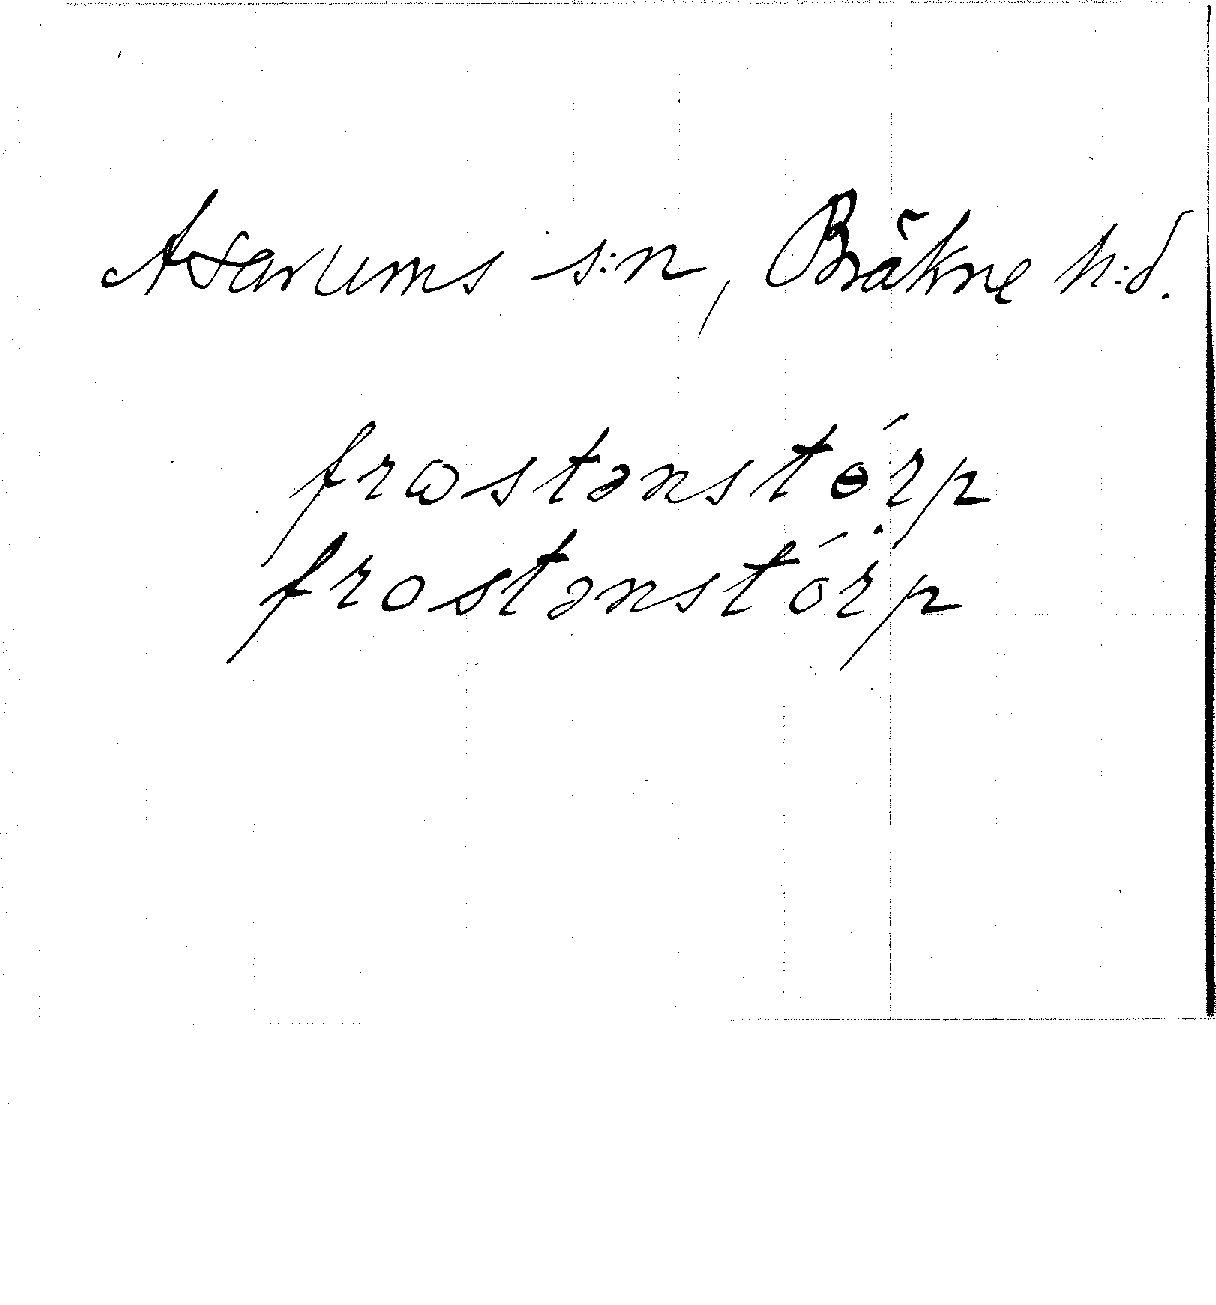 Asarums s:n, Bräkne h:d.
frωstənstɵ́rp
frostənstórp